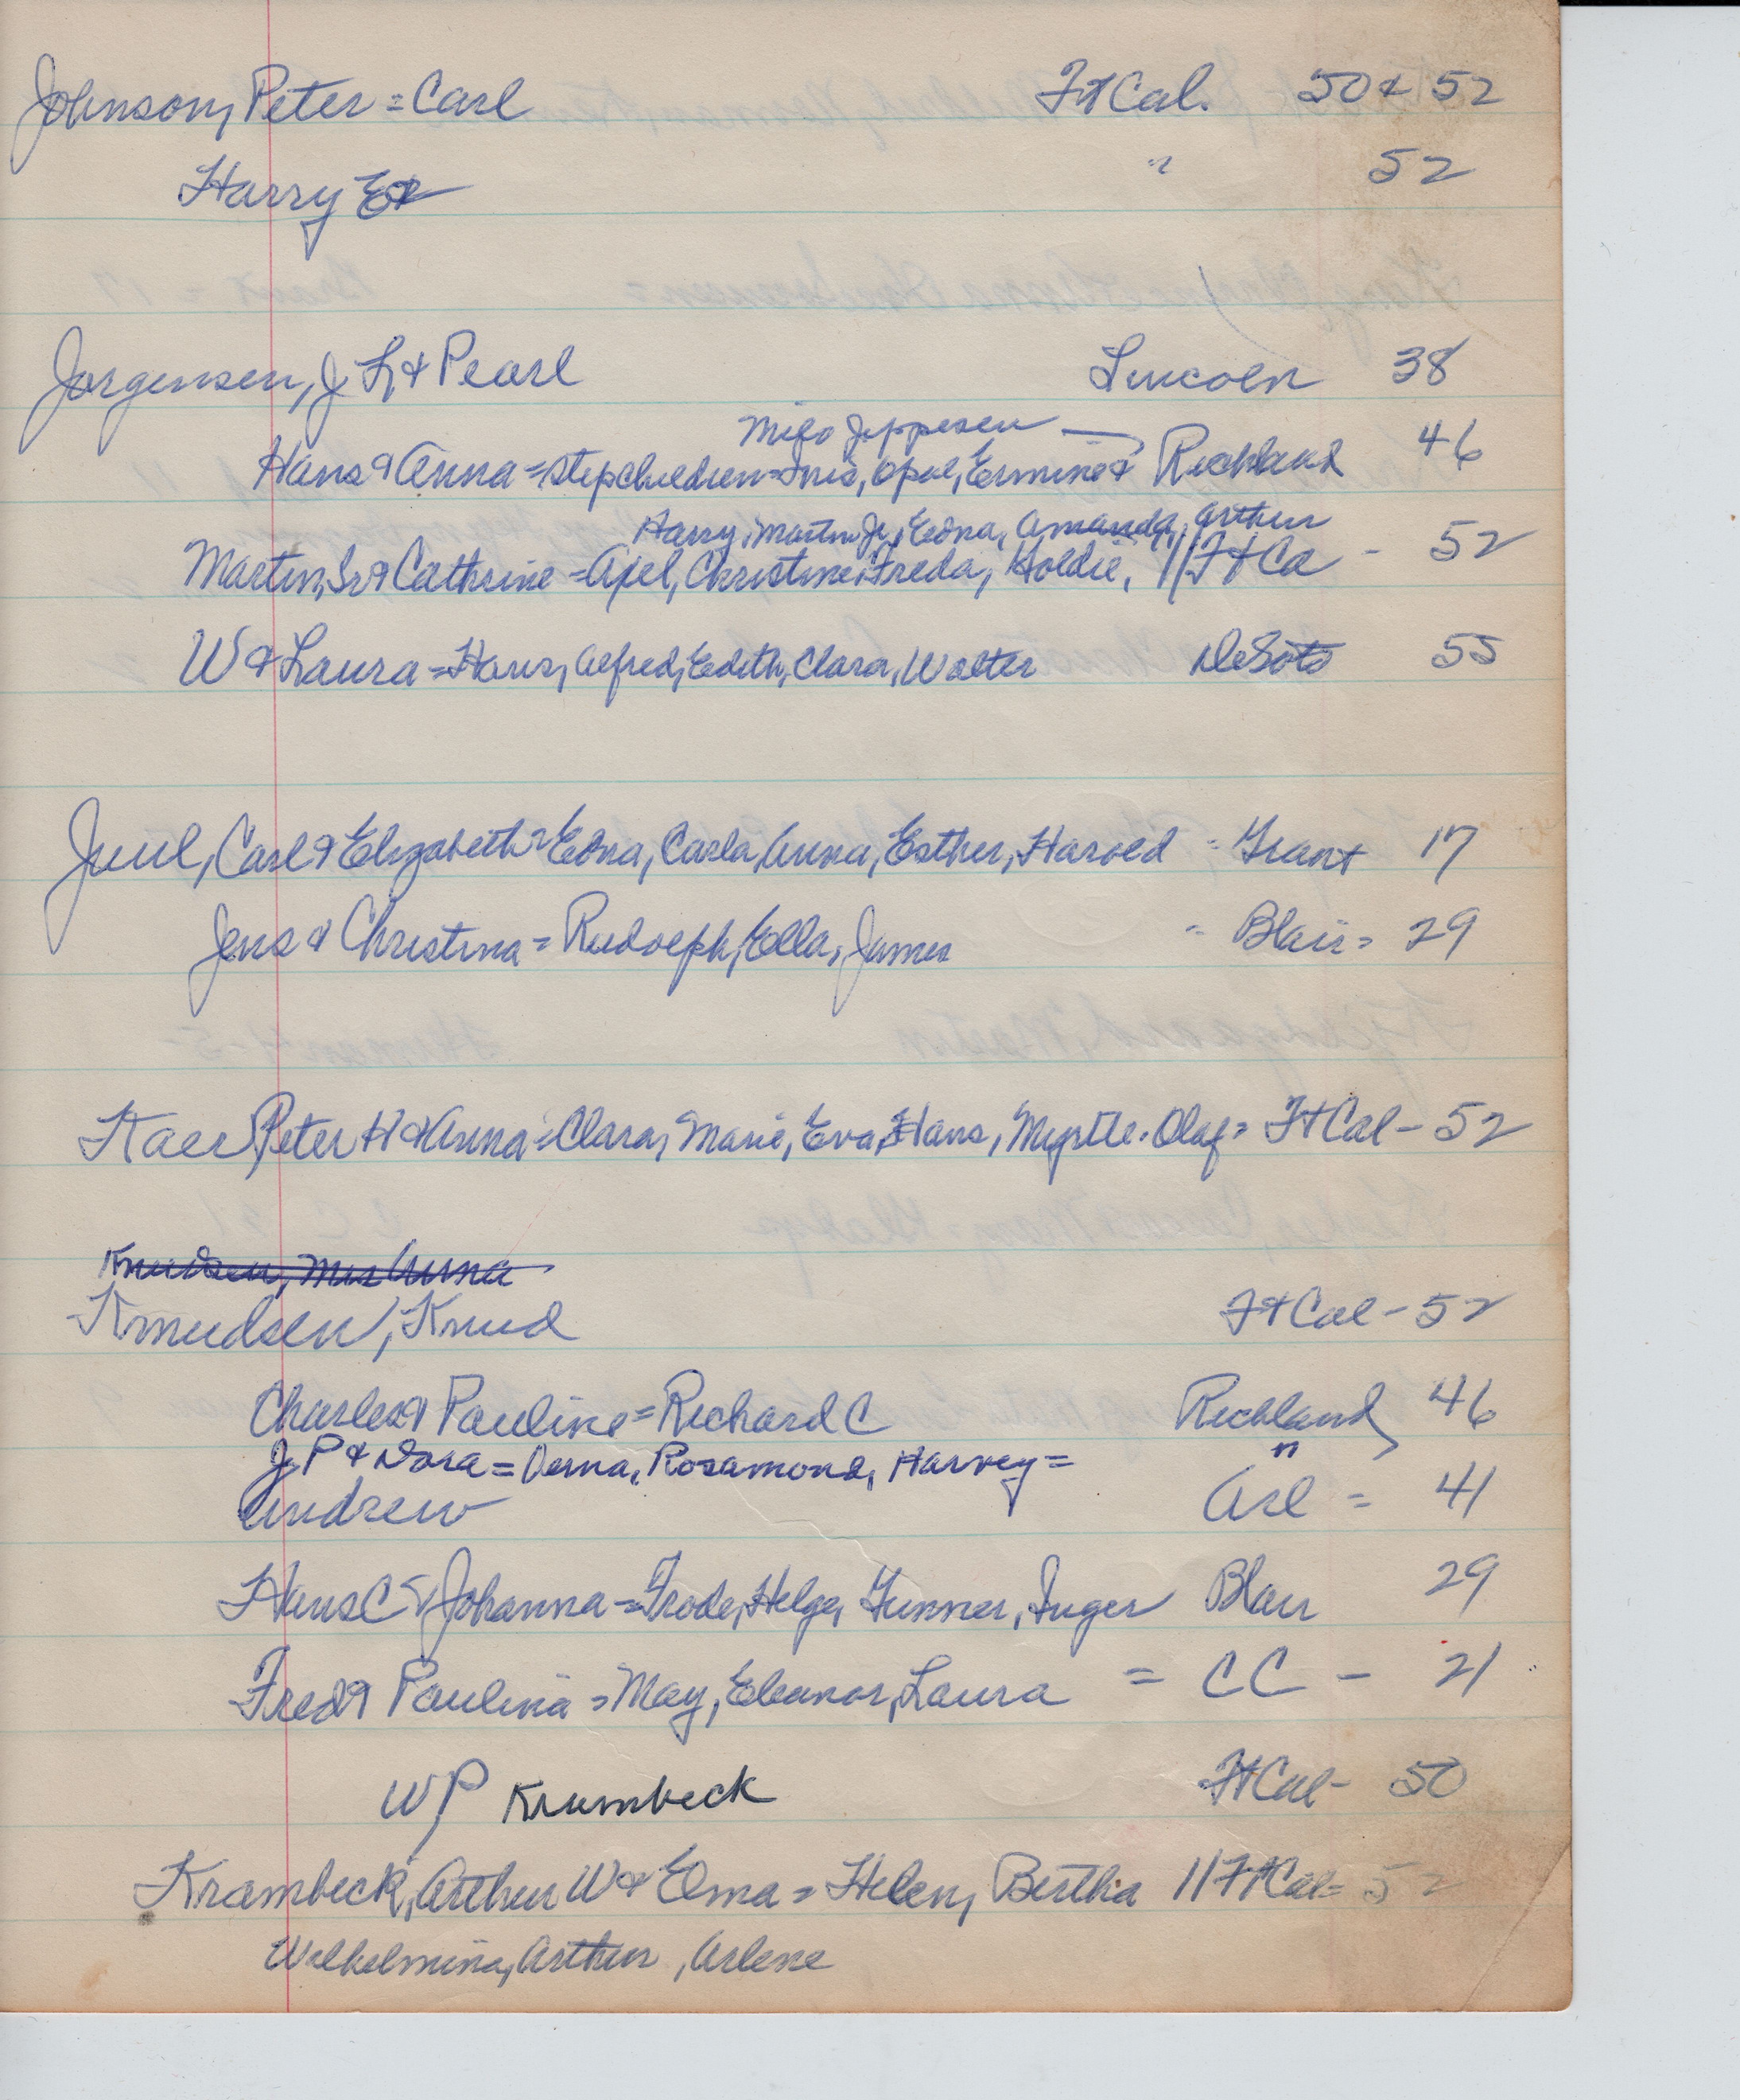 Johnson, Peter = Carl Ft Cal. 50 & 52
Harry E " 52
Jorgensen, J L & Pearl Lincoln 38
Milo Jeppesen
Hans & Anna = stepchildren = Inis, Opal, Ermine & Richland 46
Harry, Martin Jr, Edna, Amanda, Arthur
Martin, Sr & Cathrine = Axel, Christine, Freda, Goldie, // Ft Ca - 52
W & Laura = Hans, Alfred, Edith, Clara, Walter DeSoto 55
Juul, Carl & Elizabeth = Edna, Carla, Anna, Esther, Harold = Grant 17
Jens & Christina = Rudolph, Ella, James = Blair = 29
Kaer, Peter H & Anna = Clara, Marie, Eva, Hans, Myrtle, Olaf = Ft Cal - 52
Knudsen, Mrs Anna
Knudsen, Knud Ft Cal - 52
Charles & Pauline = Richard C Richland 46
J P & Dora = Verna, Rosamond, Harvey = "
Andrew Arl = 41
Hans C & Johanna = Frode, Helge, Gunner, Inger Blair 29
Fred & Paulina = May, Eleanor, Laura = CC - 21
WP Krambeck Ft Cal - 50
Krambeck, Arthur W & Elma = Helen, Bertha // Ft Cal = 52
Wilhelmina, Arthur, Arlene